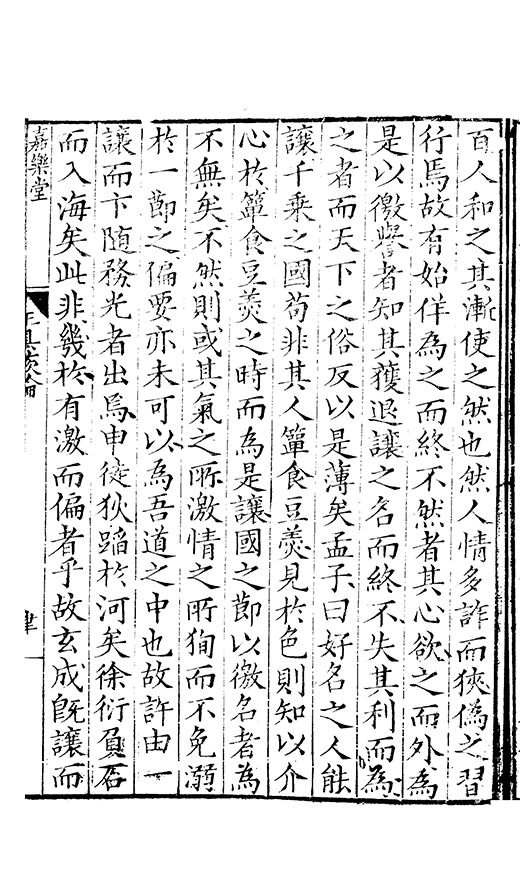 百人和之其漸使之然也然人情多詐而狹偽之習
行焉故有始佯為之而終不然者其心欲之而外為
是以徼譽者知其獲退讓之名而終不失其利而為
之者而天下之俗反以是薄矣孟子曰好名之人能
讓千乘之國苟非其人簞食豆羹見於色則知以介
心於簞食豆羹之時而為是讓國之節以徼名者為
不無矣不然則或其氣之所激情之所狥而不免溺
於一節之偏要亦未可以為吾道之中也故許由一
讓而卞隨務光者出焉申徒狄蹈於河矣徐衍負石
而入海矣此非幾於有激而偏者乎故玄成既讓而
嘉樂堂